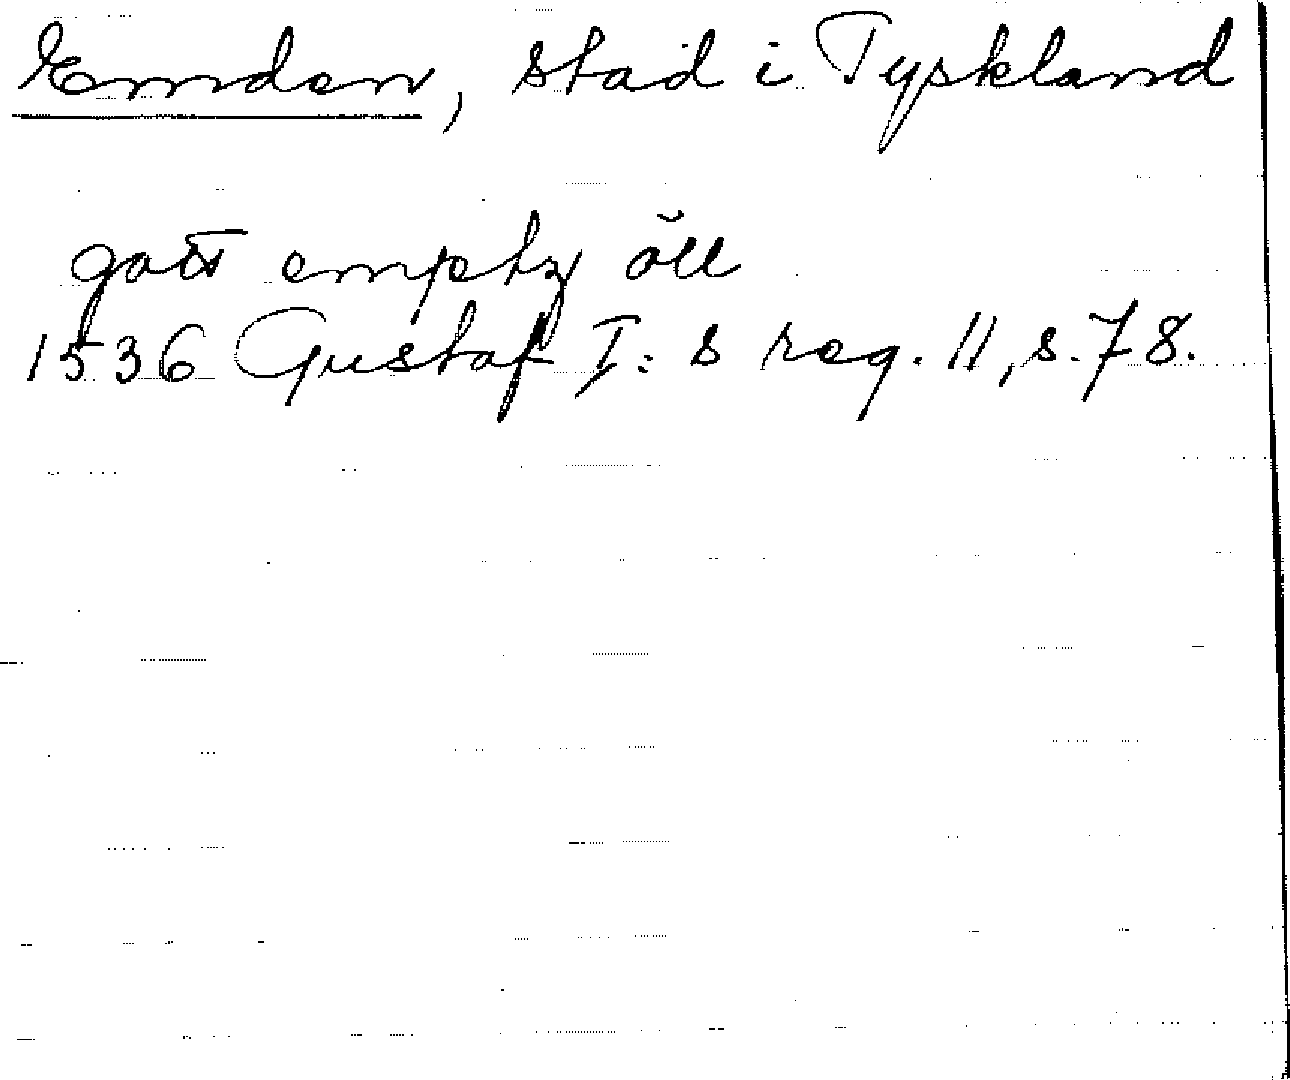 Emden, stad i Tyskland
gott empthz öll
1536 Gustaf I:s reg. 11, s. 78.